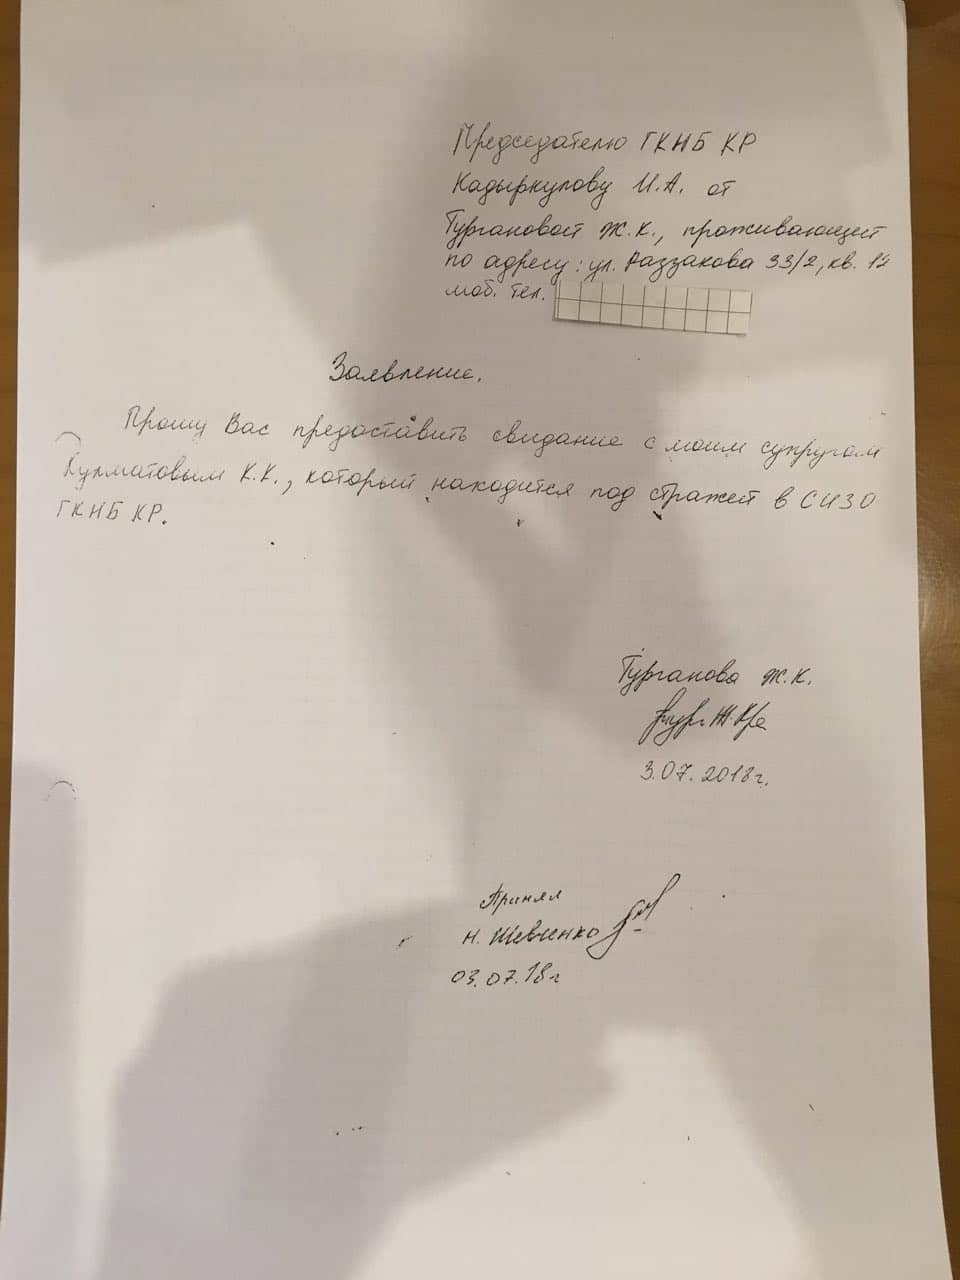 Председателю ГКНБ КР
Кадыркулову И.А. от
Тургановой Ж.К., проживающей
по адресу: ул. Раззакова 33/2, кв. 12
моб. тел.
Заявление.
Прошу Вас предоставить свидание с моим супругом
Кулматовым К.К., который находится под стражей в СИЗО
ГКНБ КР.
Турганова Ж.К.
3.07.2018г.
Принял
Н. Шевченко
03.07.18г